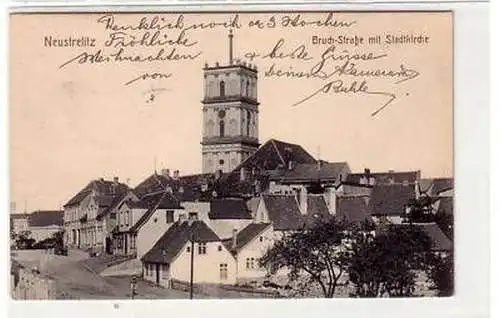 Neustrelitz
Bruch-Straße mit Stadtkirche
noch 3 Wochen
Fröhliche
Weihnachten
von
+ beste Grüsse
Deiner Kamerad